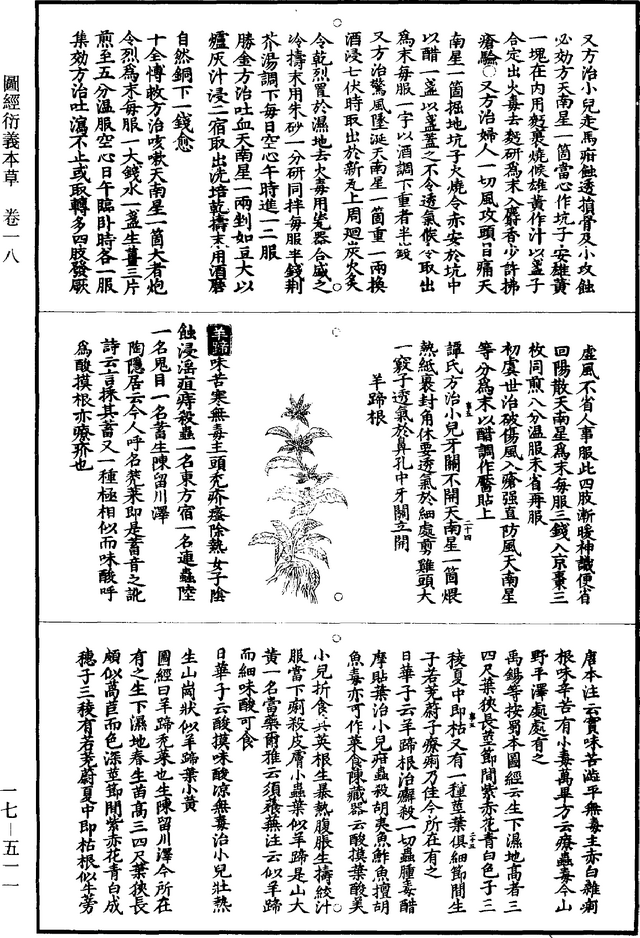 圖經衍義本草　卷一八
一七—五一一
又方治小兒走馬疳蝕透損骨及小攻蝕
必効方天南星一箇當心作坑子安雄黃
一塊在內用麪裹燒候雄黃作汁以盞子
合定出火毒去麪研爲末入麝香少許拂
瘡驗○又方治婦人一切風攻頭目痛天
南星一箇掘地坑子火燒令赤安於坑中
以醋一盞以盞蓋之不令透氣候冷取出
爲末每服一字以酒調下重者半錢
又方治驚風墜涎天南星一箇重一兩換
酒浸七伏時取出於新瓦上周廻炭火炙
令乾烈置於濕地去火毒用瓷器合盛之
冷擣末用朱砂一分研同拌每服半錢荆
芥湯調下每日空心午時進一二服
勝金方治吐血天南星一兩剉如豆大以
爐灰汁浸一宿取出洗焙乾擣末用酒磨
自然銅下一錢愈
十全博救方治咳嗽天南星一箇大者炮
令烈爲末每服一大錢水一盞生薑三片
煎至五分溫服空心日午臨臥時各一服
集効方治吐瀉不止或取轉多四肢發厥
虛風不省人事服此四肢漸暖神識便省
回陽散天南星爲末每服三錢入京棗三
枚同煎八分溫服未省再服
初虞世治破傷風入瘡强直防風天南星
等分爲末以醋調作靨貼上
譚氏方治小兒牙關不開天南星一箇煨
熱紙裹封角休要透氣於細處剪雞頭大
一竅子透氣於鼻孔中牙關立開
羊蹄根
羊蹄味苦寒無毒主頭禿疥瘙除熱女子陰
蝕浸淫疽痔殺蟲一名東方宿一名連蟲陸
一名鬼目一名蓄生陳留川澤
陶隱居云今人呼名禿菜即是蓄音之訛
詩云言採其蓄又一種極相似而味酸呼
爲酸摸根亦療疥也
唐本注云實味苦澁平無毒主赤白雜痢
根味辛苦有小毒萬畢方云療蠱毒今山
野平澤處處有之
禹錫等按蜀本圖經云生下濕地高者三
四尺葉狹長莖節間紫赤花青白色子三
稜夏中即枯又有一種莖葉俱細節間生
子若茺蔚子療痢乃佳今所在有之
日華子云羊蹄根治癬殺一切蟲腫毒醋
摩貼葉治小兒疳蟲殺胡夷魚鮓魚檀胡
魚毒亦可作菜食陳藏器云酸摸葉酸美
小兒折食其英根生暴熱腹脹生擣絞汁
服當下痢殺皮膚小蟲葉似羊蹄是山大
黃一名當藥爾雅云須薞蕪注云似羊蹄
而細味酸可食
日華子云酸摸味酸凉無毒治小兒壯熱
生山崗狀似羊蹄葉小黃
圖經曰羊蹄禿菜也生陳留川澤今所在
有之生下濕地春生苗高三四尺葉狹長
頗似萵苣而色深莖節間紫赤花青白成
穗子三稜有若茺蔚夏中即枯根似牛蒡